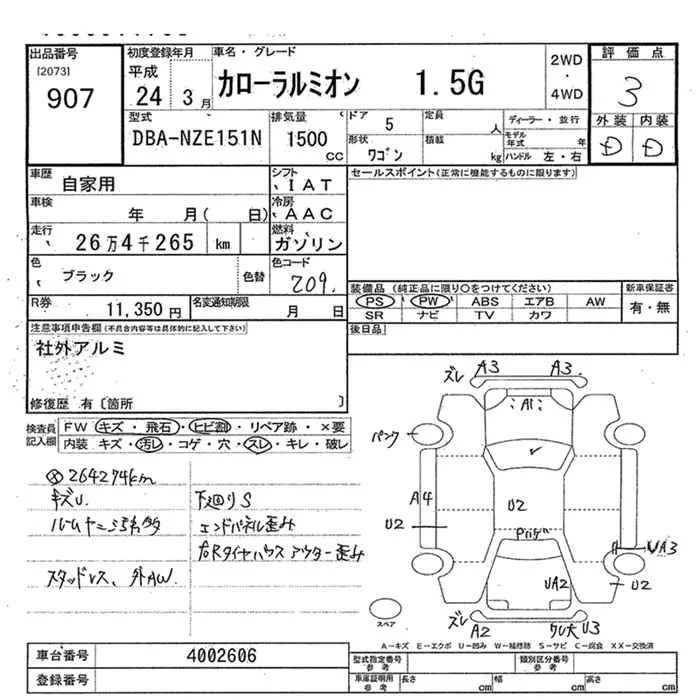 出品番号
[2073]
907
初度登録年月
平成
24 3月
車名・グレード
カローラルミオン 1.5G
2WD
・
4WD
評価点
3
外装 内装
D D
型式
DBA-NZE151N
排気量
1500
CC
ドア
5
形状
ワゴン
定員
人
積載
kg
ディーラー・並行
モデル年式 年
ハンドル 左・右
車歴
自家用
シフト
IAT
車検
年 月( 日)
冷房
AAC
走行
26万4千265 km
燃料
ガソリン
色
ブラック
色替
色コード
209.
R券
11,350円
名変通知期限
月 日
セールスポイント(正常に機能するものに限ります)
装備品 (純正品に限り○をつけてください)
PS PW ABS エアB AW
SR ナビ TV カワ
新車保証書
有・無
後日品
注意事項申告欄(不具合内容等は具体的に記入して下さい)
社外アルミ
修復歴 有〔箇所 〕
検査員記入欄
FW キズ・飛石・ヒビ割・リペア跡・×要
内装 キズ・汚レ・コゲ・穴・スレ・キレ・破レ
264274km
キズU.
スタッドレス、外AW.
下廻りS
エンドパネル歪み
右Rタイヤハウス アウター歪み
ズレ A3 A3
A1
パンク
A4
U2
U2
UA2
A3
U2
ズレ
A2
ワレ大 U3
スペア
A−キズ E−エクボ U−凹み W−補修跡 S−サビ C−腐食 XX−交換済
車台番号
4002606
登録番号
型式指定番号
参考
類別区分番号
参考
車庫証明用
参考
長さ cm
幅 cm
高さ cm